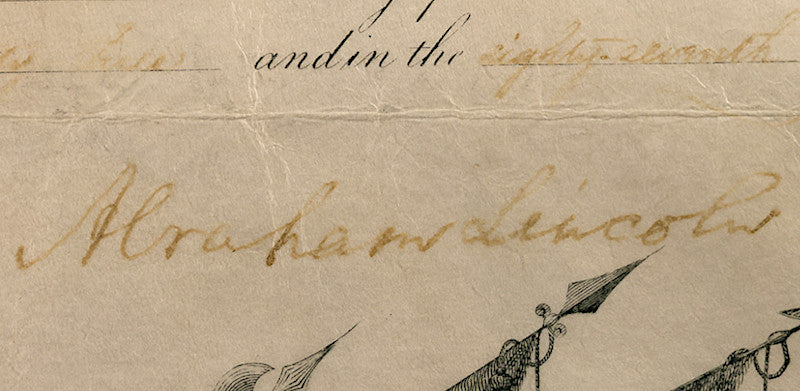 and in the eighty-seventh
Abraham Lincoln